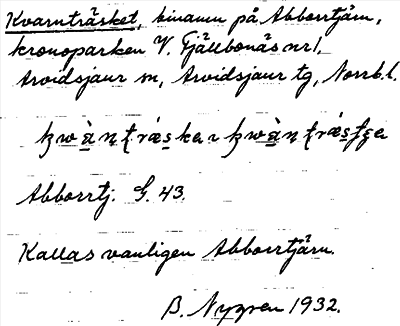 Kvarnträsket, binamn på Abborrtjärn,
kronoparken V. Fjällbonäs nr 1,
Arvidsjaur sn, Arvidsjaur tg, Norrb. l.
Abborrtj. G. 43.
Kallas vanligen Abborrtjärn.
B. Nygren 1932.